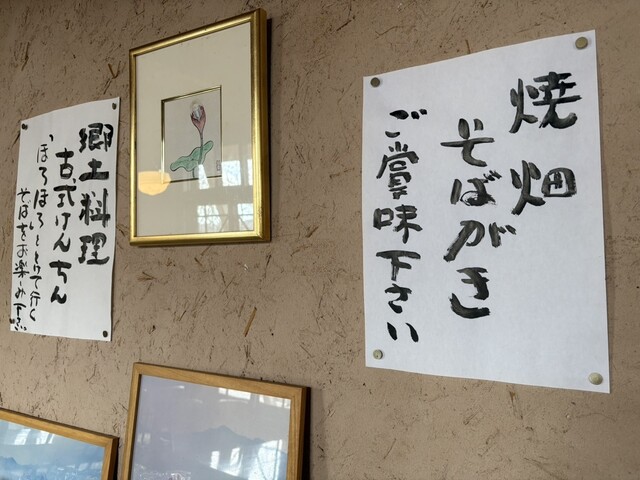 焼畑
そばがき
ご賞味下さい
郷土料理
古式けんちん
「ほろほろ」ととけて行く
そばをお楽しみ下さい